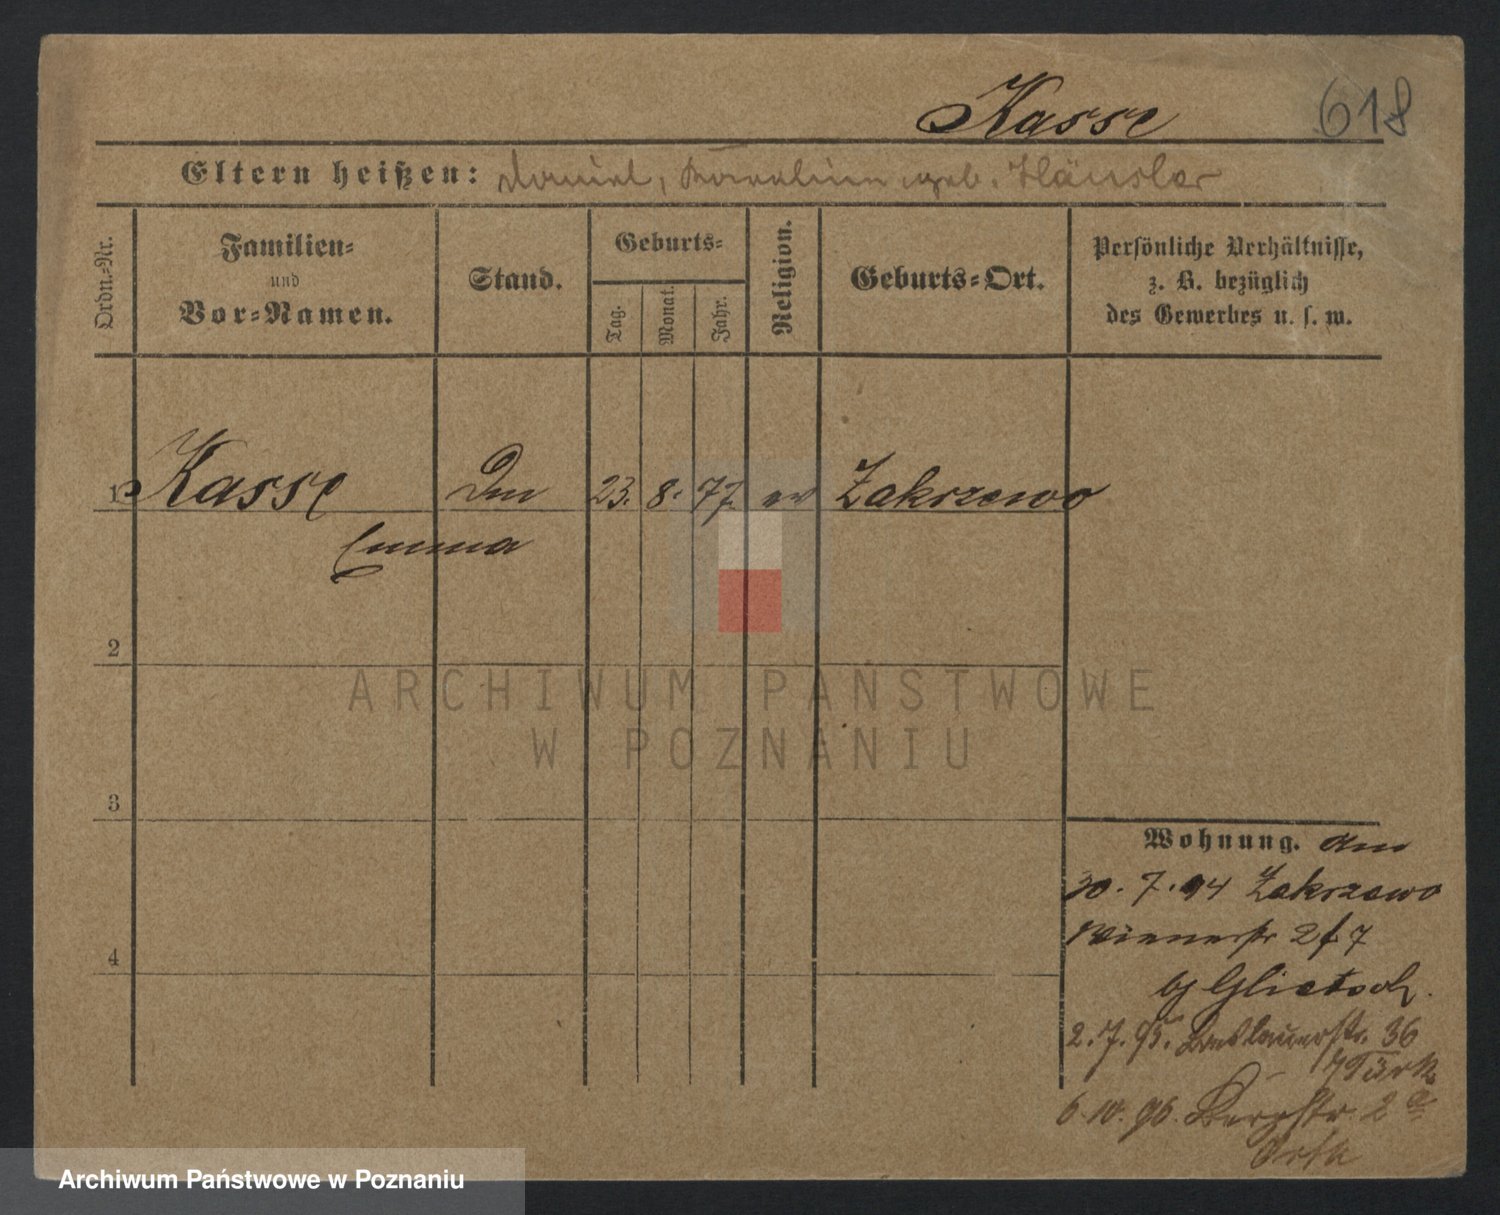 Kasse 618
Eltern heißen: Daniel, Karoline geb. Häusler
Ordn.-Nr.
Familien-
und
Vor-Namen.
Stand.
Geburts-
Tag.
Monat.
Jahr.
Religion.
Geburts-Ort.
Persönliche Verhältnisse,
z. B. bezüglich
des Gewerbes u. s. w.
1 Kasse 23. 8. 77. ev Zakrzewo
Emma
2
3
4
ARCHIWUM PAŃSTWOWE
W POZNANIU
Wohnung. am
30. 7. 94 Zakrzewo
Wienerstr 2 7
Glietsch.
2. 7. 95. Breslauerstr. 36
Türk
6. 10. 96. Bergstr. 2a
Archiwum Państwowe w Poznaniu